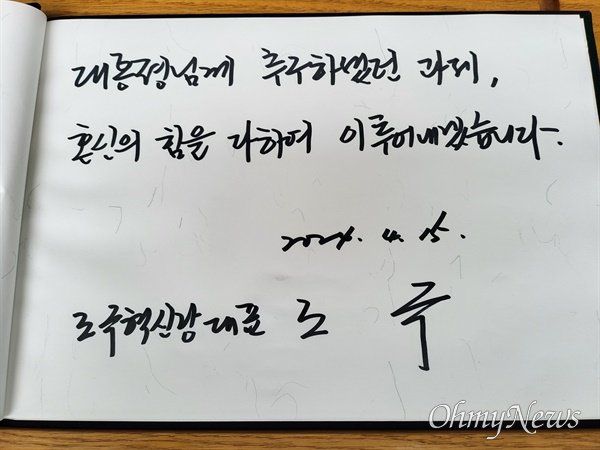 대통령님께 추구하셨던 과제,
혼신의 힘을 다하여 이루어내겠습니다.
2024. 4. 15.
조국혁신당 대표 조 국
OhmyNews